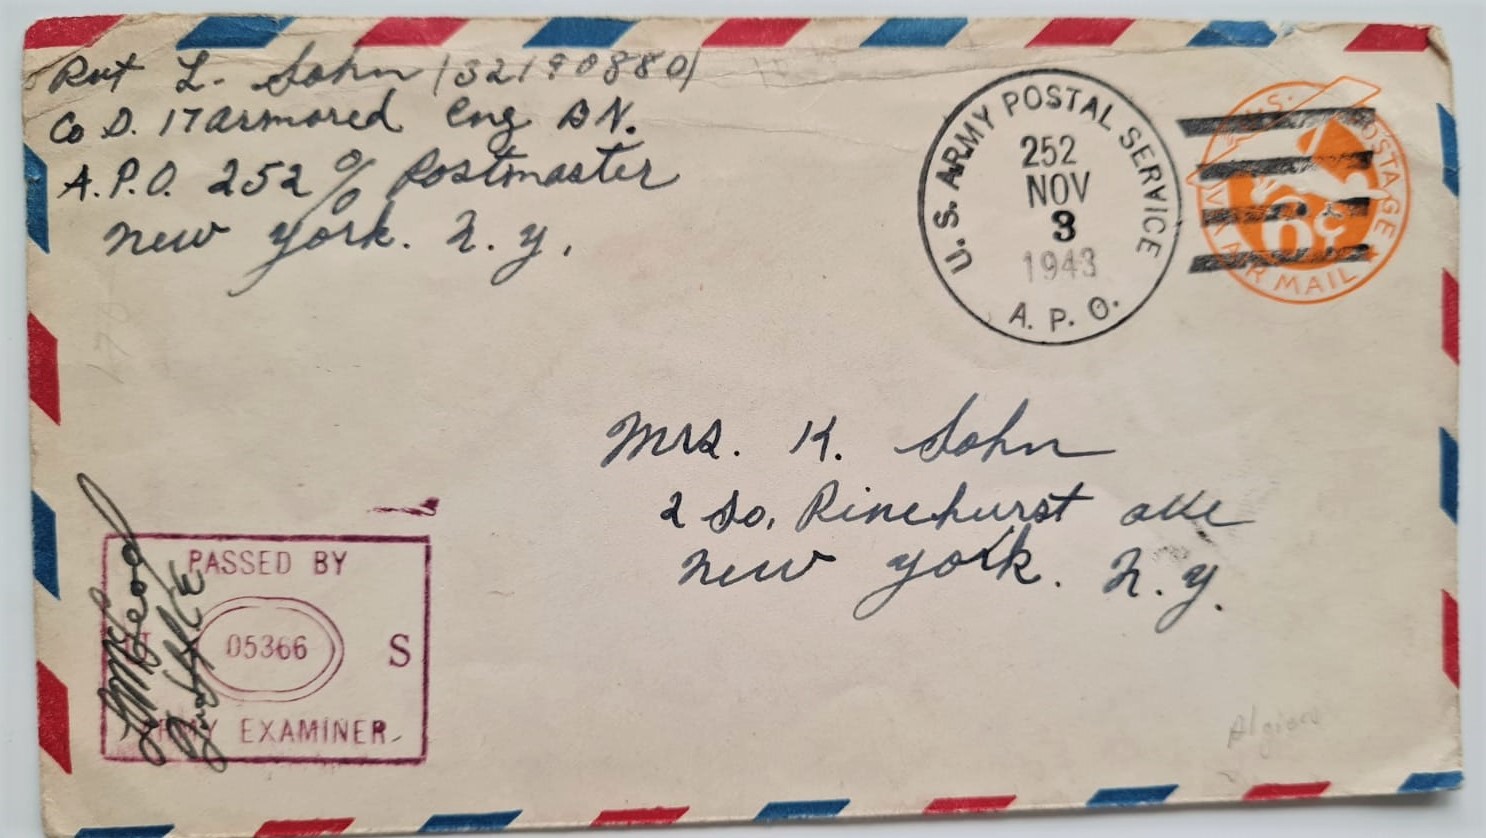 Pvt L. Sohn (32190880)
Co D. 17 armored Eng BN.
A.P.O. 252 % Postmaster
New York. N.Y.
U.S. ARMY POSTAL SERVICE
252
NOV
3
1943
A. P. O.
U.S. POSTAGE
6¢
VIA AIR MAIL
Mrs. K. Sohn
2 So. Pinehurst ave
New York. N.Y.
PASSED BY
05366 S
ARMY EXAMINER
Algiers